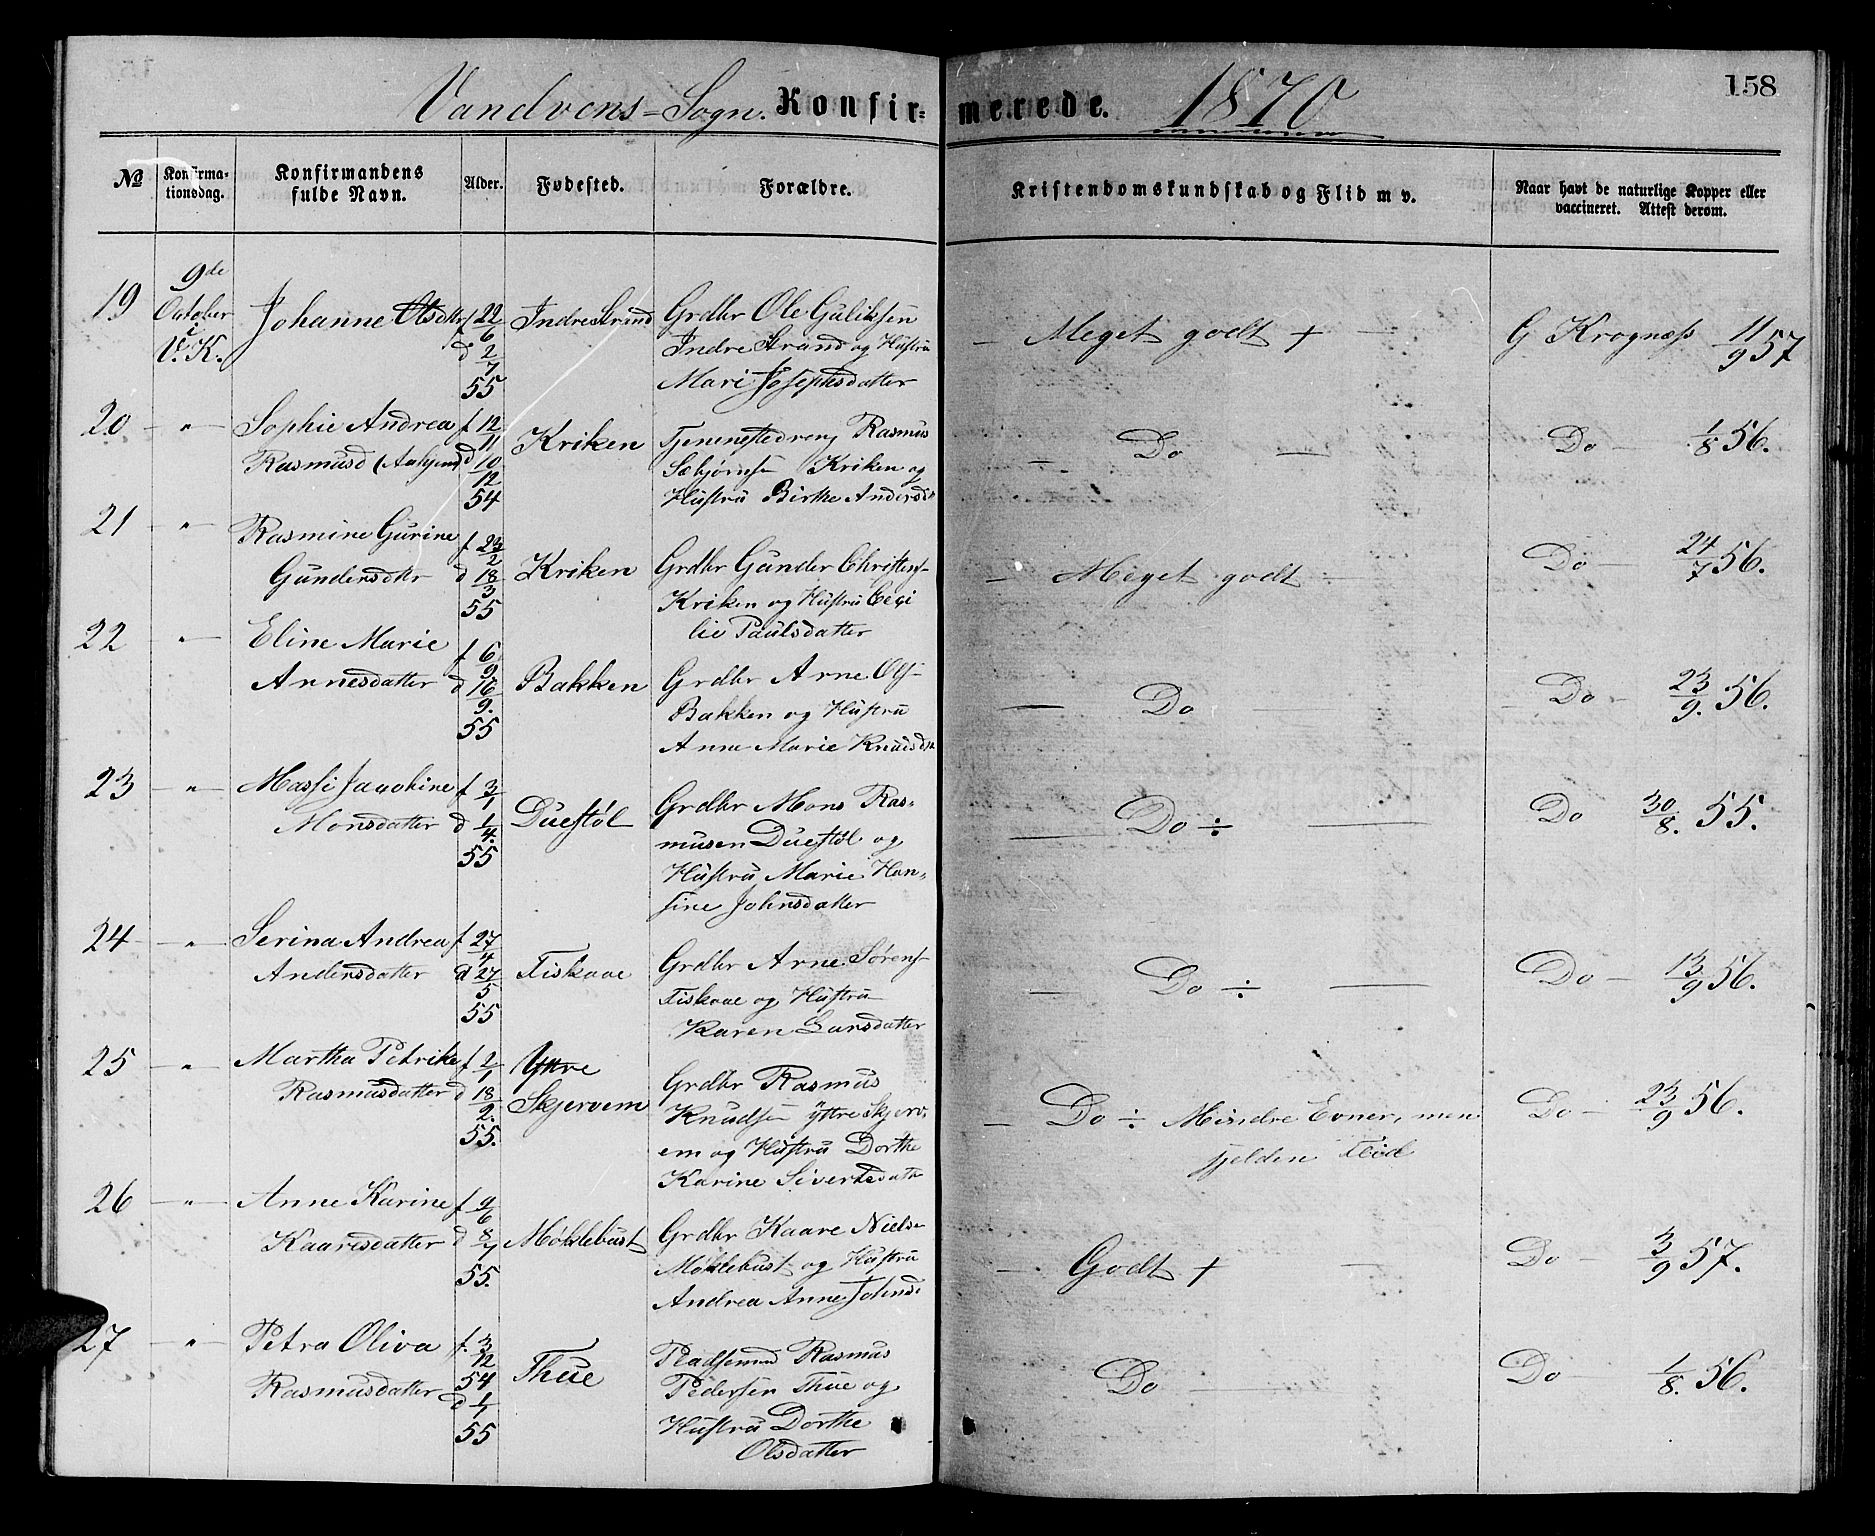 158
Vandvens-Sogn. Konfirmerede. 1870
No
Konfirmationsdag.
Konfirmandens fulde Navn.
Alder.
Fødested.
Forældre.
Kristendomskundskab og Flid m v.
Naar havt de naturlige Kopper eller vaccineret. Attest derom.
19 9de Johanne Olsdttr f 22/6 Indre Strand Grdbr Ole Guliksen — Meget godt + — G Krogness 11/9 57
October i V. K. d 2/7 Indre Strand og Hustru
55 Mari Josephsdatter
20 — " — Sophie Andrea f 12/11 Kriken Tjenestedreng Rasmus — Do — Do — 1/8 56.
Rasmusd d 10/12 Kriken og
54 Hustru Birthe Andersd
21 — " — Rasmine Gurine f 23/2 Kriken Grdbr Gunder Christens — Meget godt — Do — 24/7 56.
Gundersdttr d 18/3 Kriken og Hustru Ceci
55 lie Paulsdatter
22 — " — Eline Marie f 6/9 Bakken Grdbr Arne Ols — Do — Do — 23/9. 56.
Arnesdatter d 16/9. Bakken og Hustru
55 Anne Marie Knudsdtr
23 — " — Massi Jacobine f 3/1 Duestøl Grdbr Mons Ras= — Do ÷ — Do 30/8. 55.
Monsdatter d 1/4. musen Duestøl og
55 Hustru Marie Han=
sine Johnsdatter
24 — " — Serina Andrea f 27/4 Fiskaae Grdbr Arne Sørens — Do ÷ — Do — 13/9 56.
Andersdatter d 27/5 Fiskaae og Hustru
55 Karen Larsdatter
25 — " — Martha Petrike f 2/1 Yttre Skjervem Grdbr Rasmus — Do ÷ Mindre Evner, men Do — 23/9 56.
Rasmusdatter d 18/2. Knudsen yttre Skjerv= sjelden Flid
55. em og Hustru Dorthe
Karine Sivertsdatt
26 — " — Anne Karine f 9/6 Møklebust Grdbr Kaare Niels — Godt + — Do — 3/9 57.
Kaaresdatter d 8/7 Møklebust og Hustru
55. Andrea Anne Johnsd
27 — " — Petra Oliva f. 3/12 54 Thue Pladsemnd Rasmus Do — Do — 1/8. 56.
Rasmusdatter d 1/1 Pedersen Thue og
55 Hustru Dorthe
Olsdatter